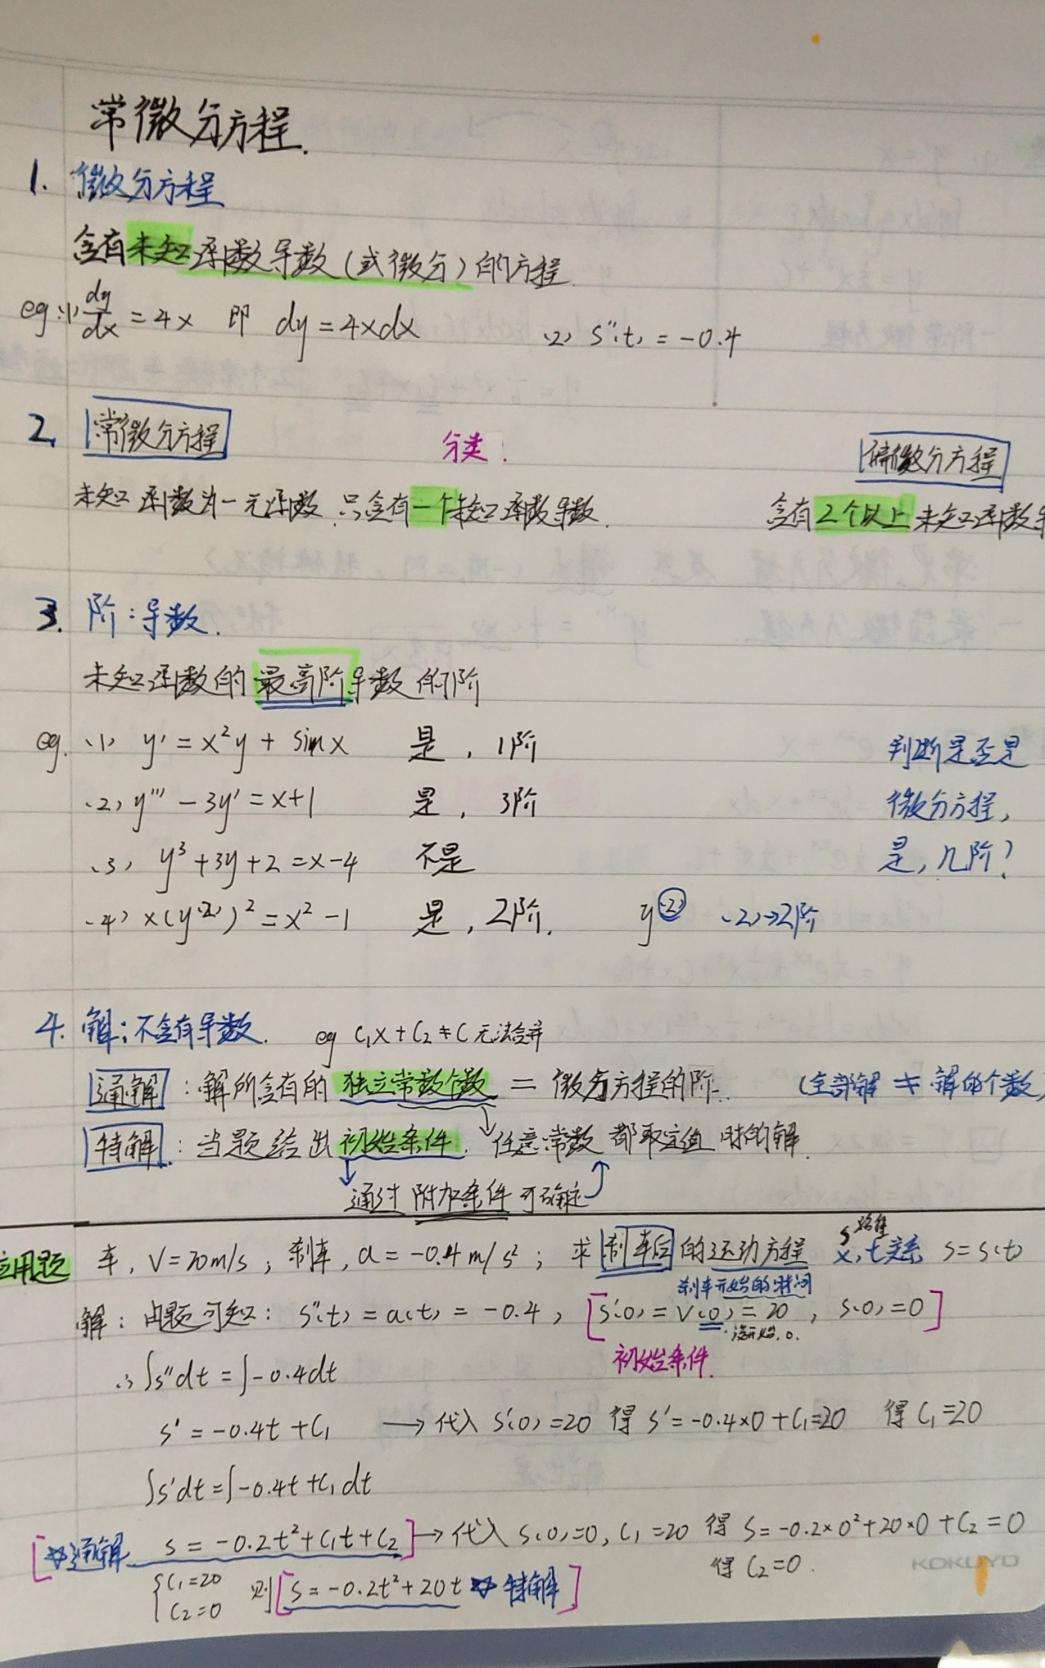 常微分方程.
1. 微分方程
含有未知函数导数(或微分)的方程
eg:(1) dy/dx = 4x 即 dy = 4xdx (2) s''(t) = -0.4
2. 常微分方程 分类: 偏微分方程
未知函数为一元函数.只含有一个未知函数导数. 含有2个以上未知函数导
3. 阶:导数.
未知函数的最高阶导数的阶
eg. (1) y' = x²y + sinx 是, 1阶 判断是否是
(2) y''' - 3y' = x+1 是, 3阶 微分方程,
(3) y³+3y+2 = x-4 不是 是,几阶?
(4) x(y⁽²⁾)² = x²-1 是, 2阶. y⁽²⁾ (2)→2阶
4. 解:不含有导数. eg C₁x + C₂ ≠ C 无法合并
通解:解所含有的独立常数个数 = 微分方程的阶. (全部解 ≠ 解的个数)
特解:当题给出初始条件. 任意常数都取定值时的解.
通过附加条件可确定
应用题 车, V=20m/s, 刹车, a = -0.4m/s²; 求刹车后的运动方程 s路程 x,t关系 s=s(t)
刹车开始的瞬间
解:由题可知: s''(t) = a(t) = -0.4, [s'(0) = V(0) = 20, s(0) = 0]
初始条件.
∴ ∫s''dt = ∫-0.4dt
s' = -0.4t + C₁ → 代入 s'(0)=20 得 s' = -0.4×0+C₁=20 得 C₁=20
∫s'dt = ∫-0.4t+C₁dt
[☆通解 s = -0.2t²+C₁t+C₂] → 代入 s(0)=0, C₁=20 得 s = -0.2×0²+20×0+C₂=0
得 C₂=0.
{C₁=20 C₂=0 则[s = -0.2t²+20t ☆特解]
KOKUYO